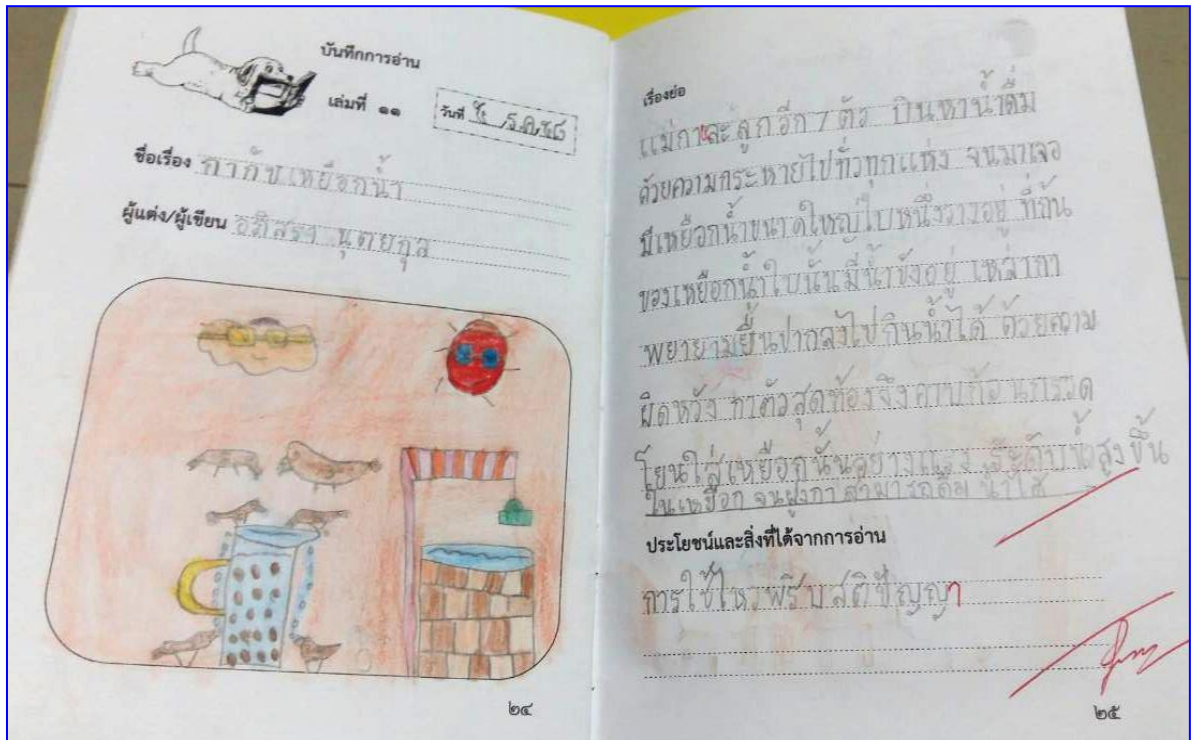 บันทึกการอ่าน
เล่มที่ ๑๑
วันที่ ธ.ค.
ชื่อเรื่อง กากับเหยือกน้ำ
ผู้แต่ง/ผู้เขียน อภิสรา นุตยกุล
๒๔
เรื่องย่อ
แม่กาและลูกอีก 7 ตัว บินหาน้ำดื่ม
ด้วยความกระหายไปทั่วทุกแห่ง จนมาเจอ
มีเหยือกน้ำขนาดใหญ่ใบหนึ่งวางอยู่ ที่ก้น
ของเหยือกน้ำใบนั้นมีน้ำขังอยู่ เหล่ากา
พยายามยื่นปากลงไปกินน้ำได้ ด้วยความ
ผิดหวัง กาตัวสุดท้องจึงคาบก้อนกรวด
โยนใส่เหยือกนั้นอย่างแรง ระดับน้ำสูงขึ้น
ในเหยือก จนฝูงกาสามารถดื่มน้ำได้
ประโยชน์และสิ่งที่ได้จากการอ่าน
การใช้ไหวพริบสติปัญญา
๒๕